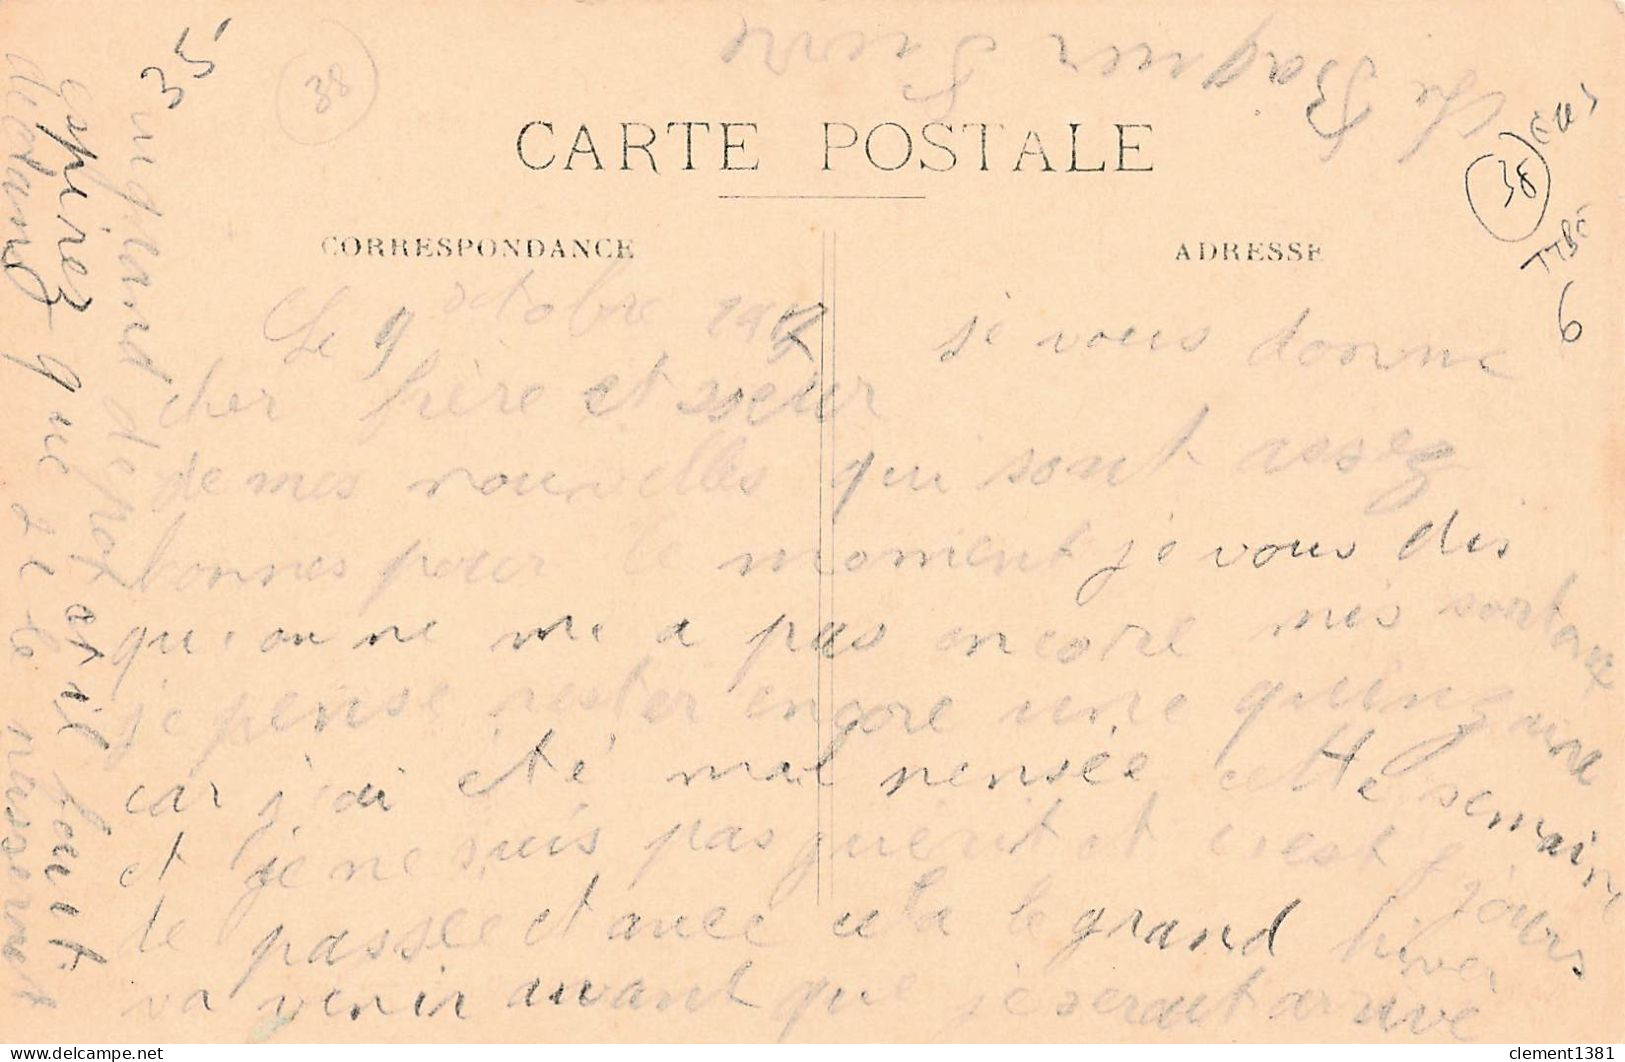 35
38
CARTE POSTALE
38
TTBE
6
CORRESPONDANCE
ADRESSE
Le 9 octobre
cher frère et sœur je vous donne
de mes nouvelles qui sont assez
bonnes pour le moment je vous dis
qui on ne me a pas encore mis sortant
je pense rester encore une quinzaine
car j'ai été mal pensée cette semaine
et je ne suis pas guerit et c'est jours
de passée et avec cela le grand hiver
va venir avant que je serait arrivé
espirez que
clement1381